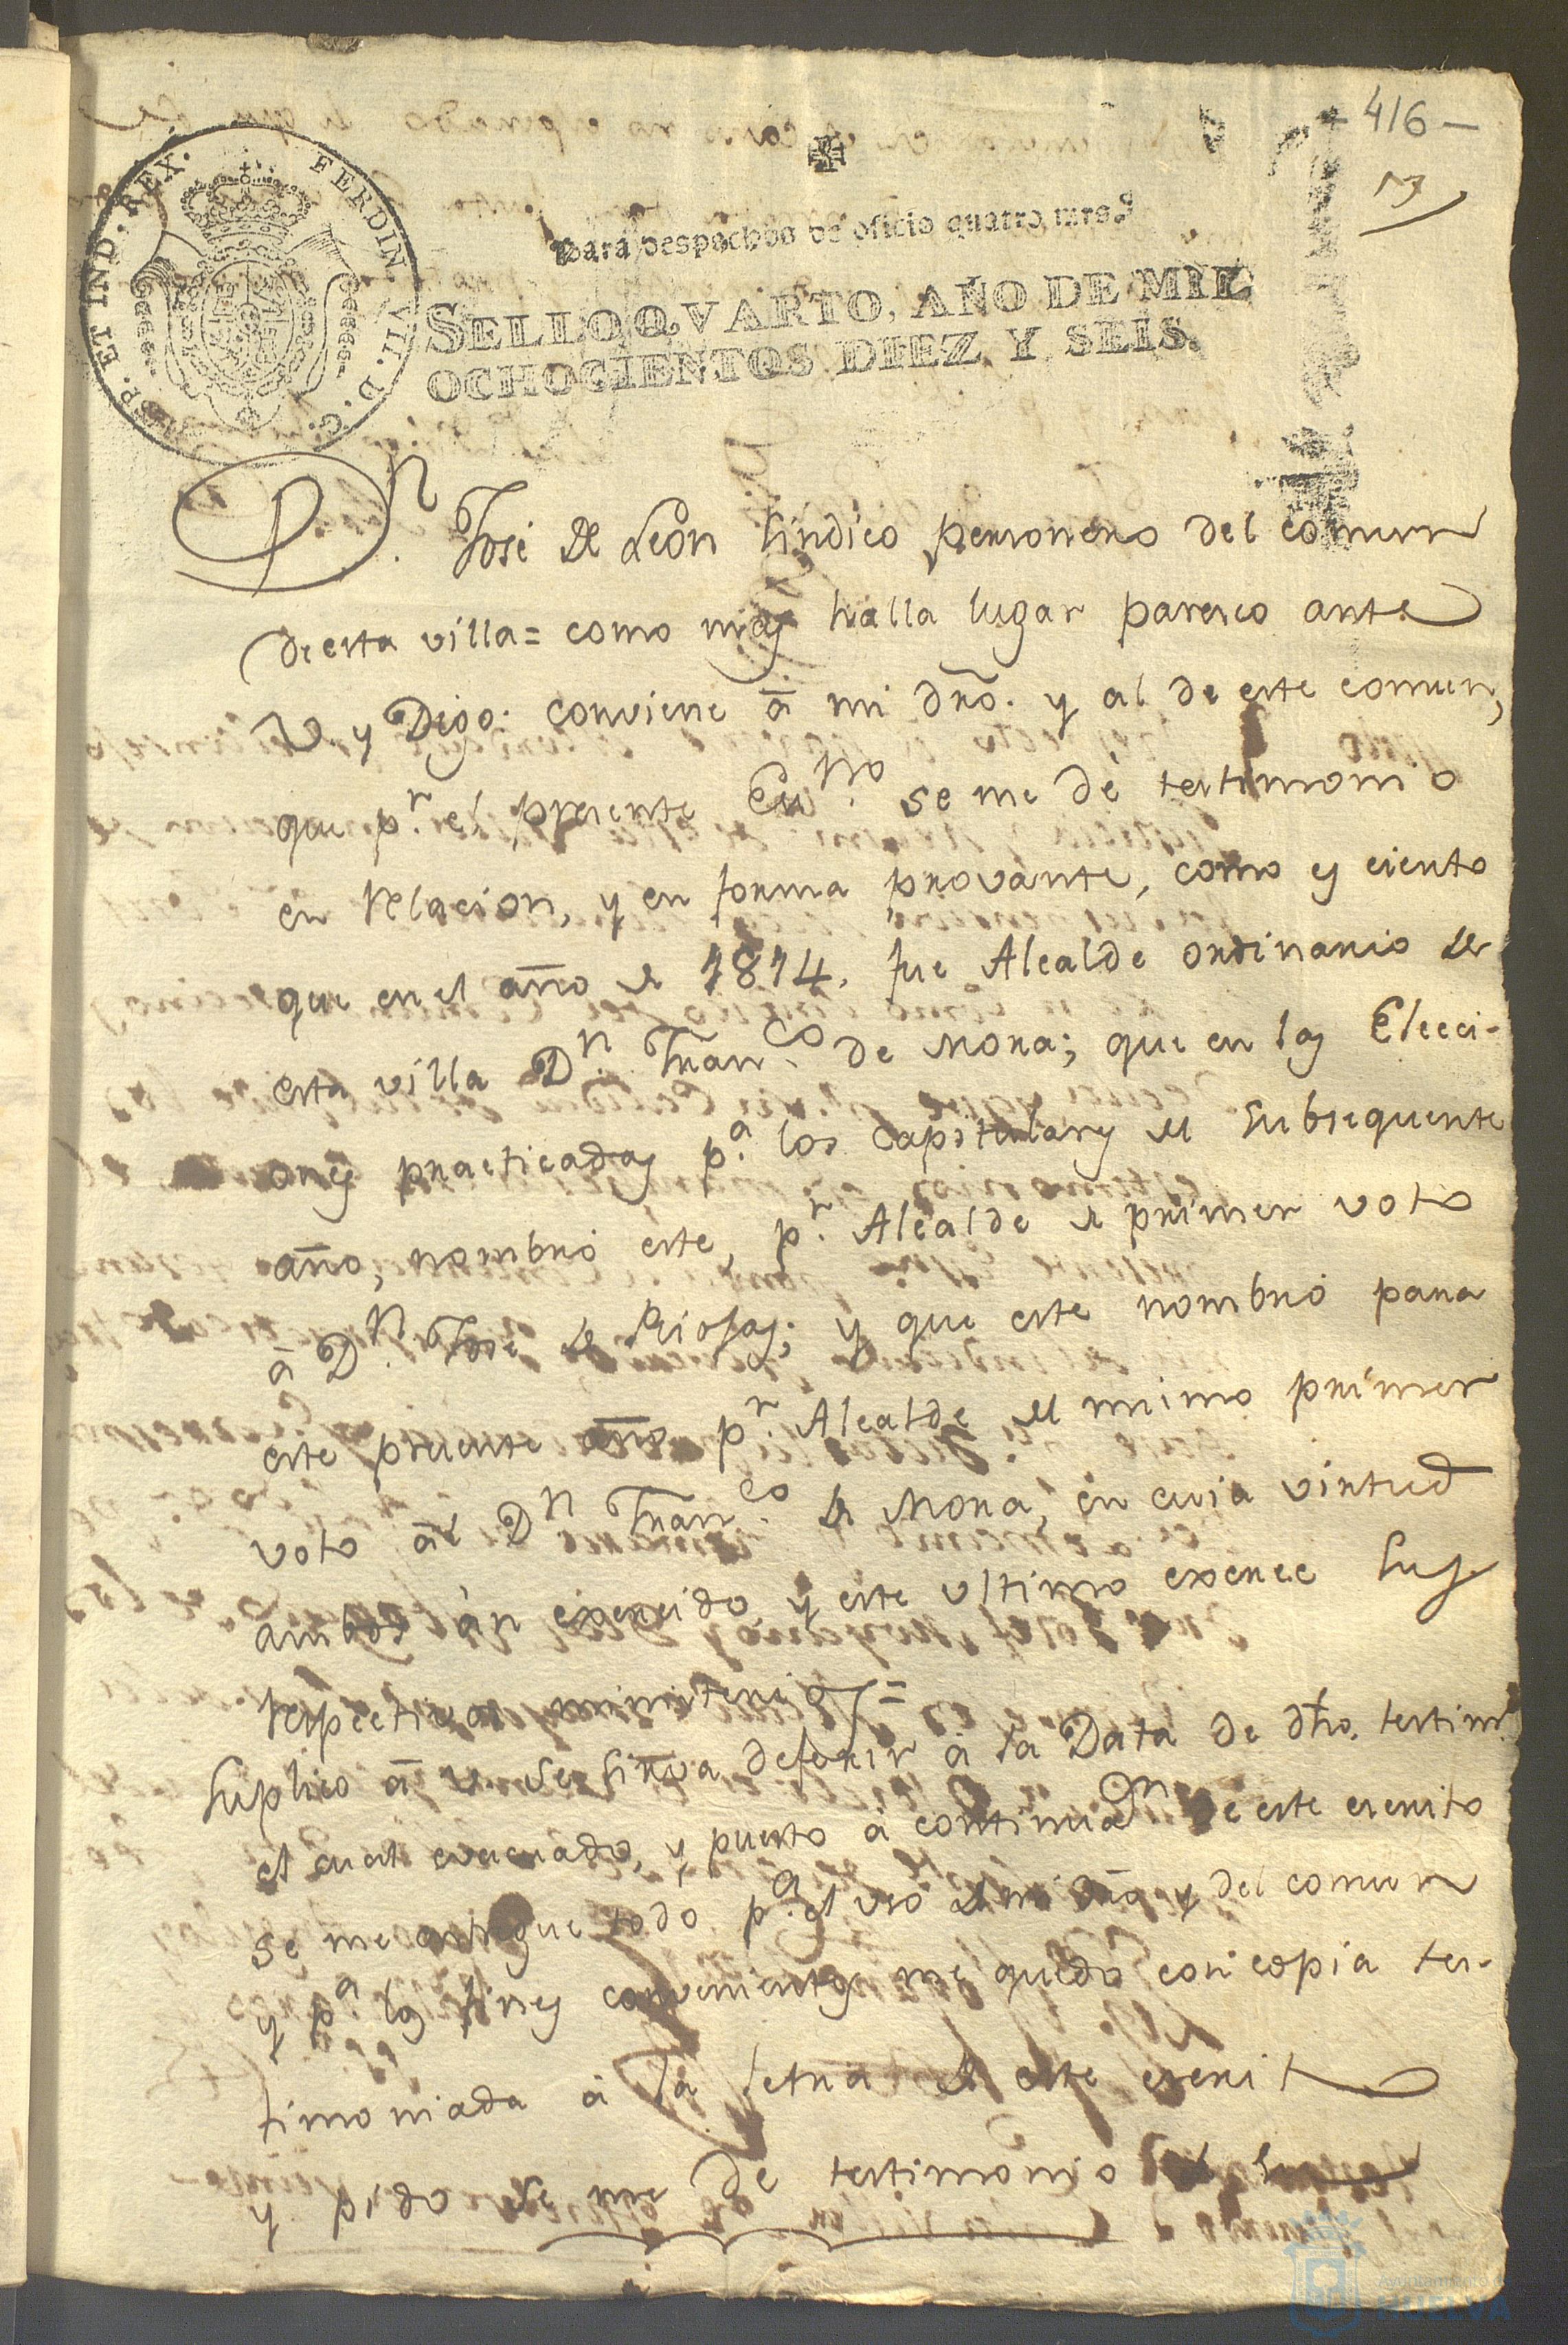 416-
13
HISP. ET IND. REX. FERDIN. VII. D. G.
Para despachos de oficio quatro mrs.
SELLO QVARTO, AÑO DE MIL
OCHOCIENTOS DIEZ Y SEIS.
Dn. José de Leon sindico personero del comun
de esta villa = como mas halla lugar paresco ante
V y Digo: conviene á mi dro. y al de este comun,
que pr. el presente Esno. se me dè testimonio
en relacion, y en forma provante, como es ciento
que en el año de 1814. fue Alcalde ordinario de
esta villa Dn. Franco. de Mora; que en las Elecci-
ones practicadas pa. los capitulares del subsequente
año, nombró éste, pr. Alcalde de primer voto
á Dn. José de Riofas; y que este nombró para
este presente año pr. Alcalde del mismo primer
voto ál Dn. Franco. de Mora, en cuia virtud
ambos án exercido, y este ultimo exerce sus
respectivos ministerios =
Suplico á V se sirva deferir á la Data de dho. testimo.
el cual evacuado, y puesto á continuaon. de este escrito
se me entregue todo pa. el uso de mi dro. y del comun
y pa. los fines convenientes me quedo con copia tes-
timoniada á la letra de este escrito
y pido se me de testimonio
Ayuntamiento
HUELVA